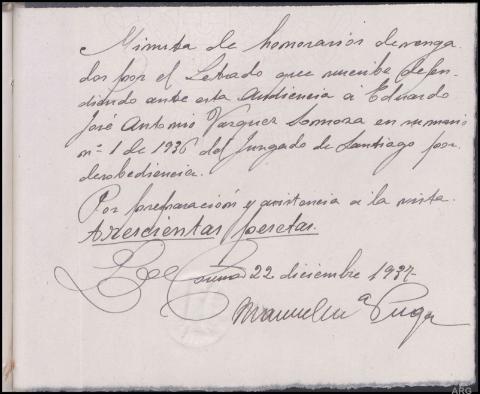 Minuta de honorarios devenga-
dos por el Letrado que suscribe defen-
diendo ante esta Audiencia a Eduardo
José Antonio Vazquez Somoza en sumario
nº 1 de 1936 del Juzgado de Santiago por
desobediencia.
Por preparación y asistencia a la vista.
trescientas pesetas.
La Coruña 22 diciembre 1937
Manuel Mª Puga
ARG